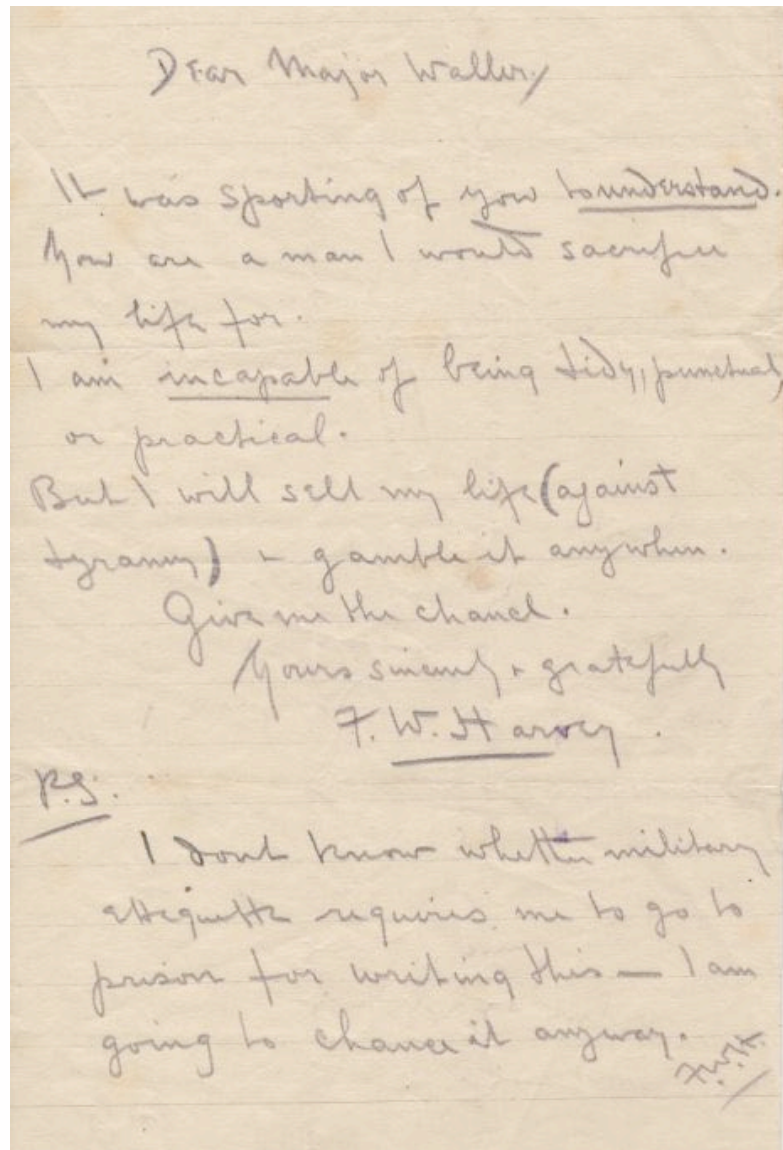 Dear Major Waller,
It was sporting of you to understand.
You are a man I would sacrifice
my life for.
I am incapable of being tidy, punctual,
or practical.
But I will sell my life (against
tyranny) & gamble it anywhen.
Give me the chance.
Yours sincerely & gratefully
F. W. Harvey.
P.S.
I dont know whether military
ettiquette requires me to go to
prison for writing this — I am
going to chance it anyway.
F.W.H.